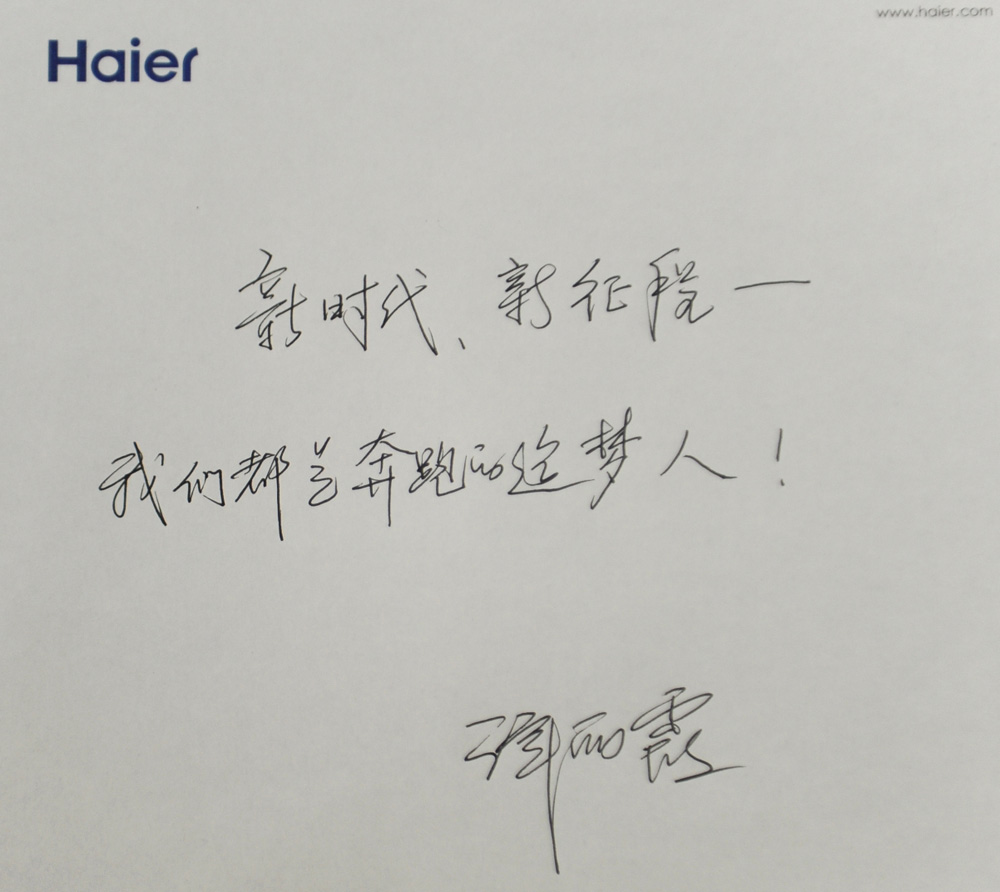 www.haier.com
Haier
新时代、新征程—
我们都是奔跑的追梦人！
丽霞